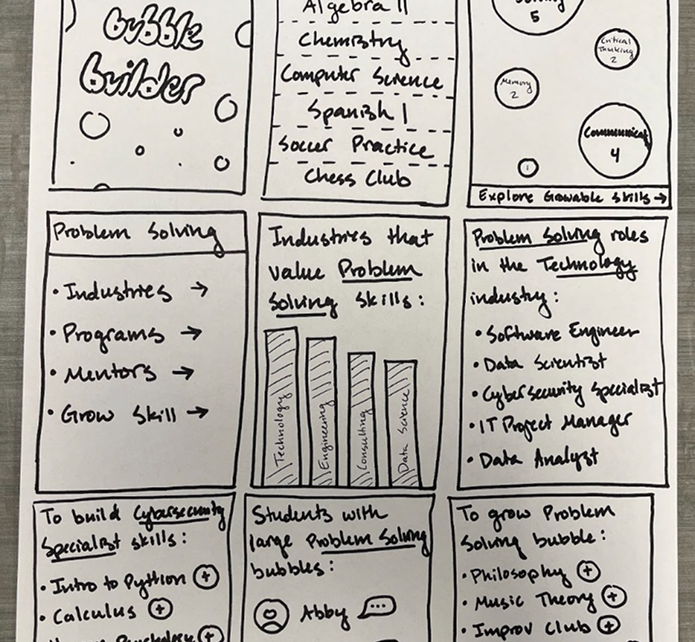 bubble
builder
Algebra II
Chemistry
Computer Science
Spanish 1
Soccer Practice
Chess Club
5
Critical
Thinking
2
Memory
2
Communicat
4
Explore Growable Skills →
Problem Solving
• Industries →
• Programs →
• Mentors →
• Grow Skill →
Industries that
value Problem
Solving skills:
Technology
Engineering
Consulting
Data Science
Problem Solving roles
in the Technology
industry:
• Software Engineer
• Data Scientist
• Cybersecurity Specialist
• IT Project Manager
• Data Analyst
To build Cybersecurity
Specialist skills:
• Intro to Python +
• Calculus +
Students with
large Problem Solving
bubbles:
Abby
To grow Problem
Solving bubble:
• Philosophy +
• Music Theory +
• Improv Club +